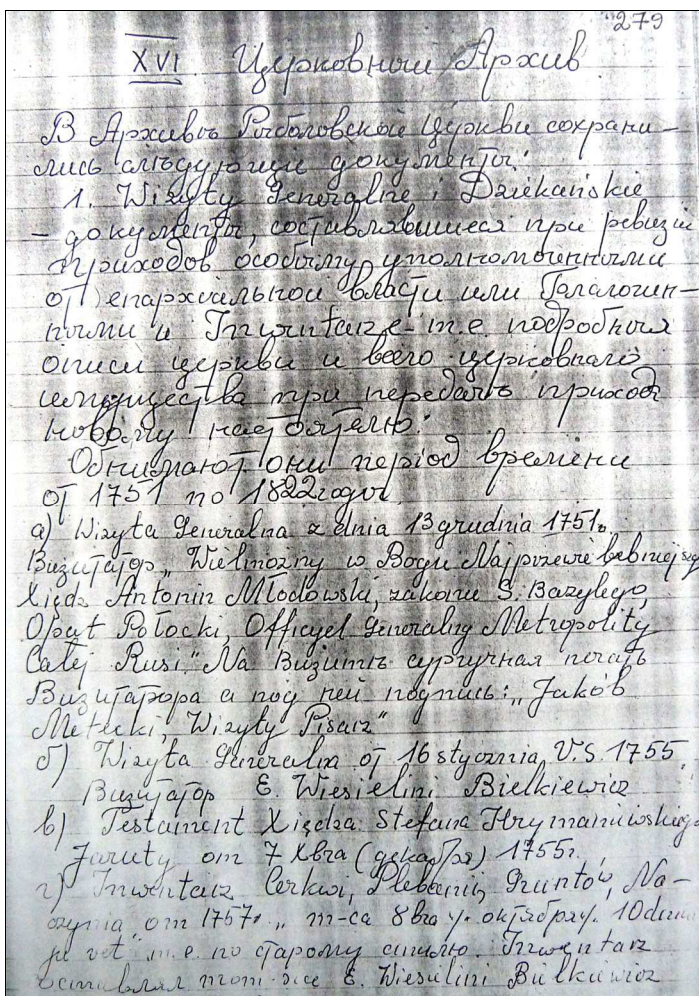 279
XVI. Церковный Архив
В Архивѣ Рыболовской Церкви сохрани-
лись слѣдующие документы:
1. Wizyty Generalne i Dziekańskie
- документы, составлявшиеся при ревизiи
приходов особыми уполномоченными
от епархiальной власти или Благочин-
ными и Inwentarze - т.е. подробныя
описи церкви и всего церковнаго
имущества при передачѣ прихода
новому настоятелю.
Обнимают они перiод времени
от 1751 по 1822 годы.
а) Wizyta Generalna z dnia 13 grudnia 1751г.
Визитатор „Wielmożny w Bogu Najprzewielebniejszy
Xiądz Antonin Młodowski, zakonu S. Bazylego,
Opat Połocki, Officyał Generalny Metropolity
Całej Rusi." На Визитѣ сургучная печать
Визитатора а под ней подпись: „Jakób
Metecki, Wizyty Pisarz"
б) Wizyta Generalna от 16 stycznia V.S. 1755.
Визитатор E. Wiesielini Bielkiewicz
в) Testament Xiędza Stefana Hrymaniewskiego
Jaruty от 7 Xbra (декабря) 1755г.
г) Inwentarz Cerkwi, Plebanii, Gruntów, Na-
czynia от 1757г. „ м-ца 8bra ч. октября ч. 10 dnia
vet" т.е. по старому стилю. Inwentarz
составлял тот-же E. Wiesielini Bielkiewicz